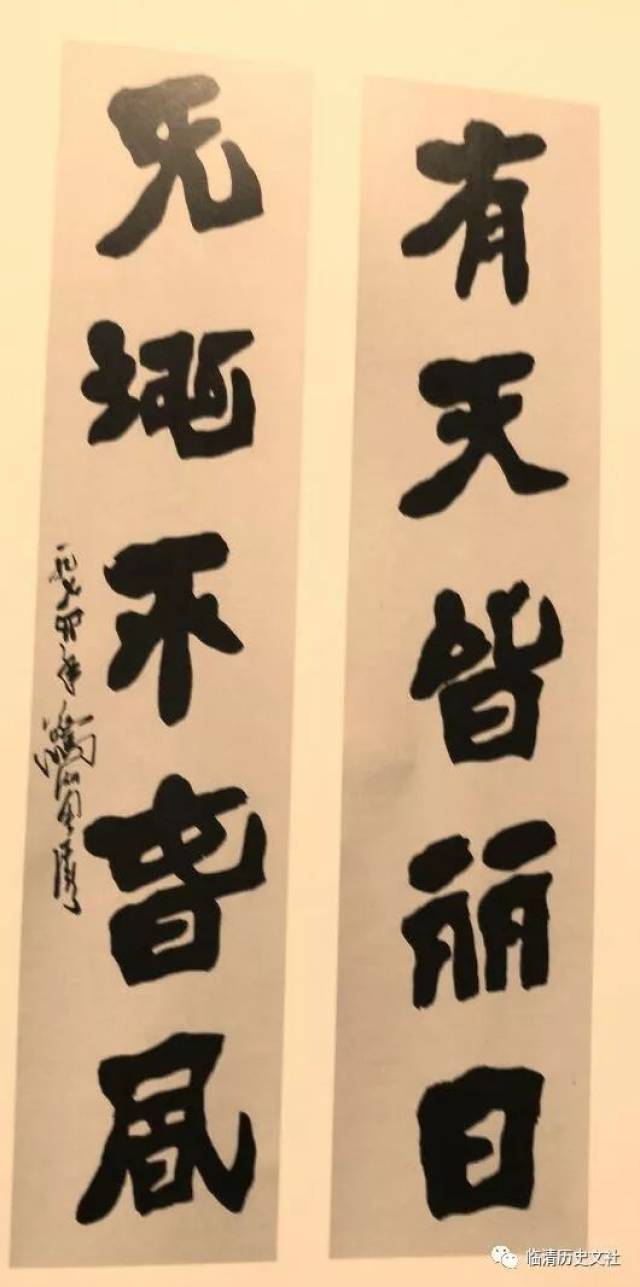 有天皆丽日
无地不春风
临清历史文社